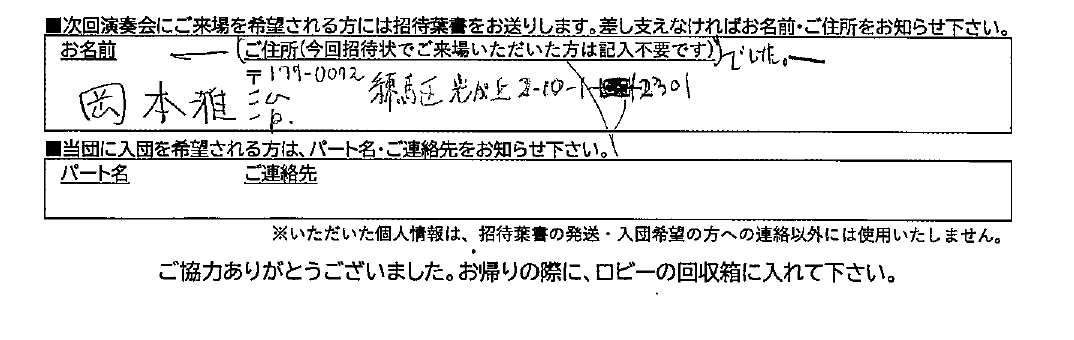 ■次回演奏会にご来場を希望される方には招待葉書をお送りします。差し支えなければお名前・ご住所をお知らせ下さい。
お名前 ご住所(今回招待状でご来場いただいた方は記入不要です)でした。
〒179-0072 練馬区光が丘2-10-1-2301
岡本雅
■当団に入団を希望される方は、パート名・ご連絡先をお知らせ下さい。
パート名 ご連絡先
※いただいた個人情報は、招待葉書の発送・入団希望の方への連絡以外には使用いたしません。
ご協力ありがとうございました。お帰りの際に、ロビーの回収箱に入れて下さい。